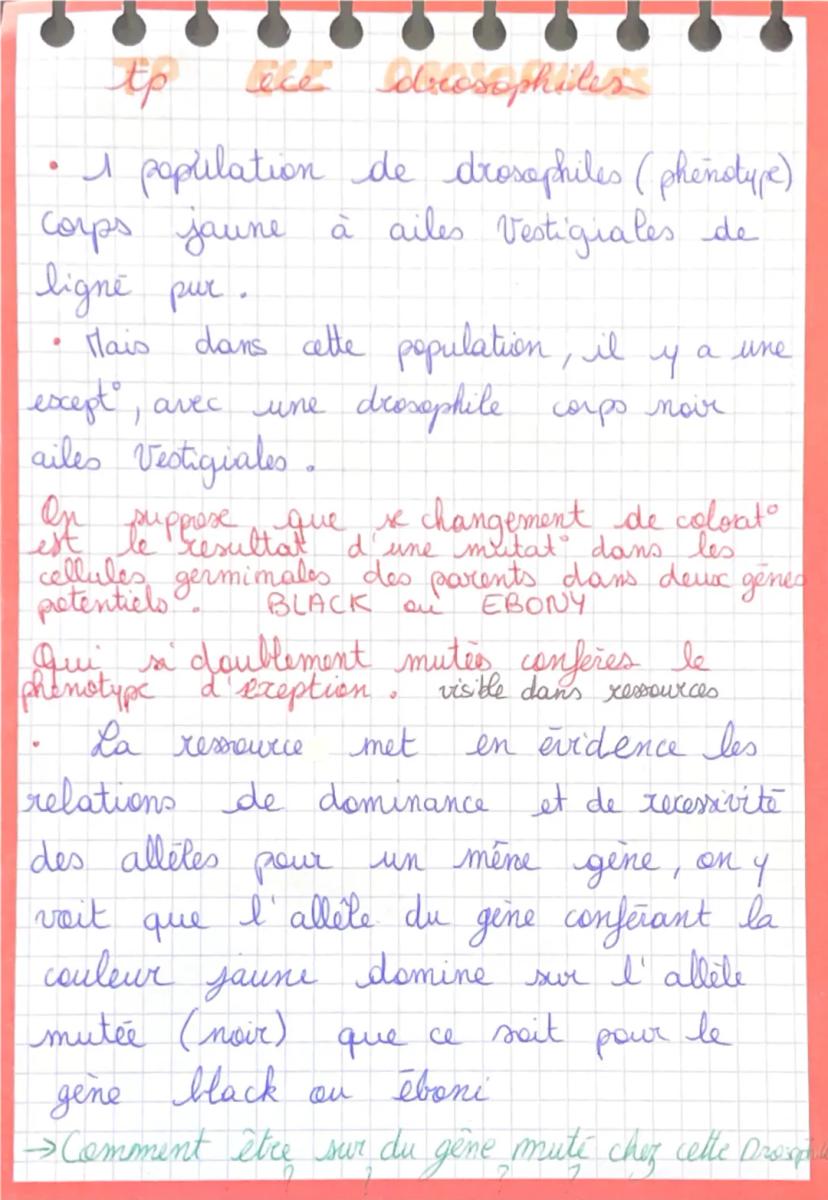 tp ece drosophiles
• 1 population de drosophiles (phénotype)
corps jaune à ailes Vestigiales de
ligné pur.
• Mais dans cette population, il y a une
except°, avec une drosophile corps noir
ailes Vestigiales.
On suppose que se changement de colorat°
est le résultat d'une mutat° dans les
cellules germimales des parents dans deux gènes
potentiels. BLACK ou EBONY
Qui si doublement mutés confères le
phénotype d'exeption. visible dans ressources
• La ressource met en évidence les
relations de dominance et de recessivité
des allèles pour un même gène, on y
voit que l'allèle du gène conférant la
couleur jaune domine sur l'allèle
mutée (noir) que ce soit pour le
gène black ou éboni
→ Comment être sur du gène muté chez cette Drosophile
? ? ? ?